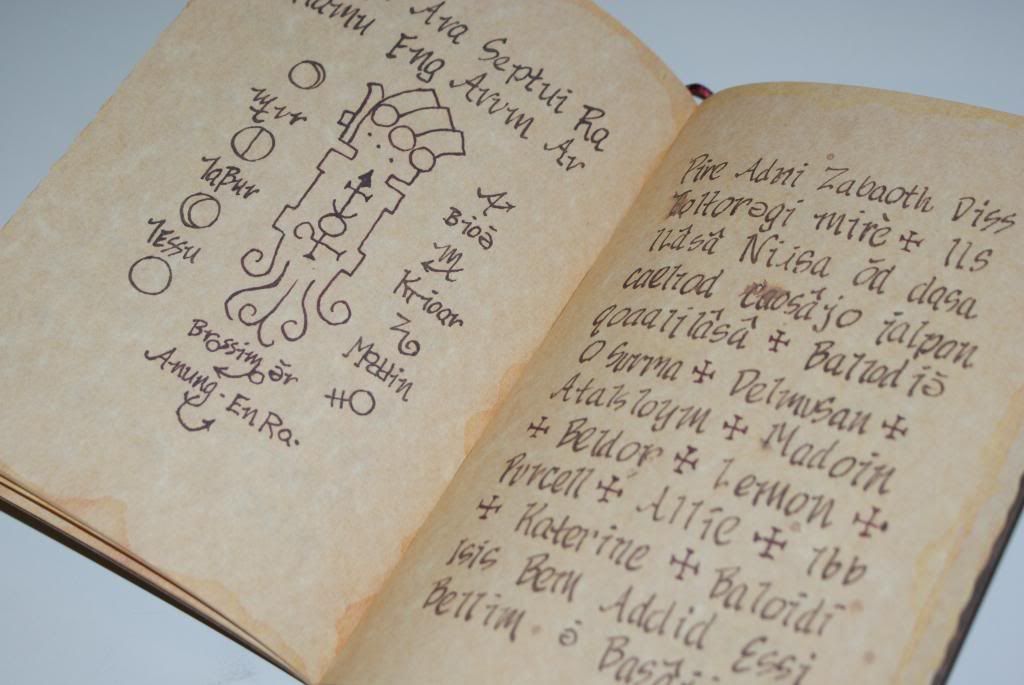 Ava Septui Ra
Eng Arvm Ar
TaBur
TEssu
Bioə̄
Krioar
Mottin
Brossim ər
Anung · En Ra.
Pire Adni Zabaoth Diss
mirè ✠ Ils
Ilâsâ Niisa ōd dasa
caelrod caosâjo ialpan
qoaalilâsâ ✠ Balzodiə̄
O Surma ✠ Delmusan ✠
Atalsloym ✠ Madoin
✠ Beldor ✠ Lemon ✠
Purcell ✠ Allie ✠ Ibb
✠ Katerine ✠ Baloidi
Isis Bern Addid Essi
Bellim · ə̄